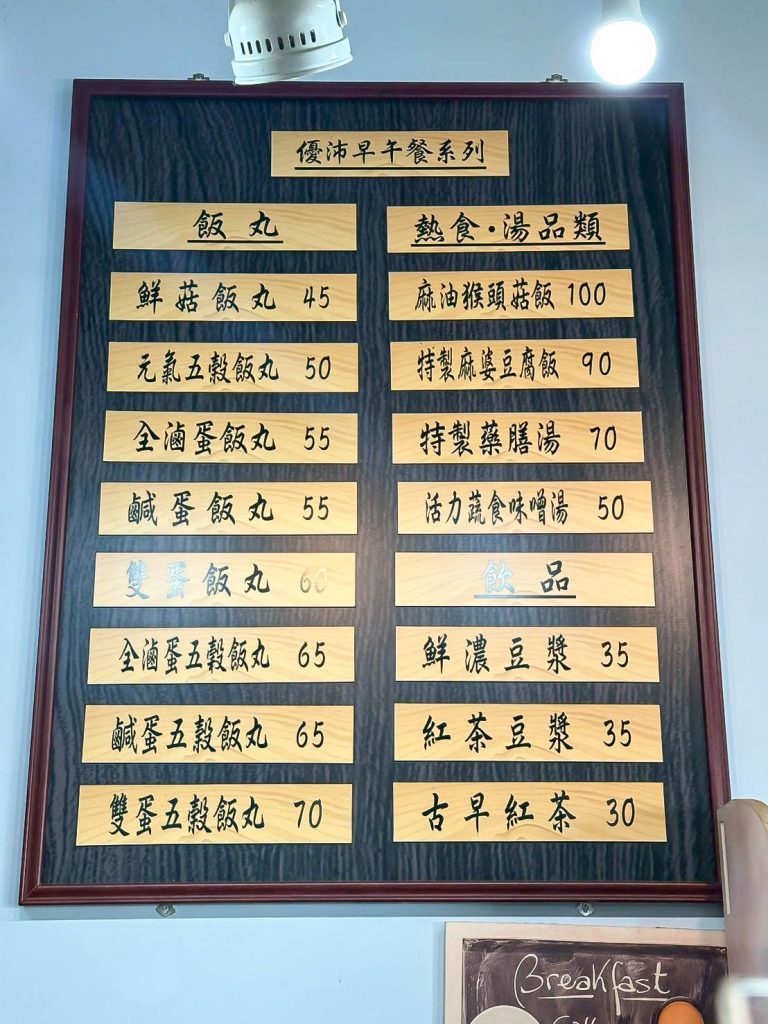 優沛早午餐系列
飯丸
鮮菇飯丸 45
元氣五穀飯丸 50
全滷蛋飯丸 55
鹹蛋飯丸 55
雙蛋飯丸 60
全滷蛋五穀飯丸 65
鹹蛋五穀飯丸 65
雙蛋五穀飯丸 70
熱食·湯品類
麻油猴頭菇飯 100
特製麻婆豆腐飯 90
特製藥膳湯 70
活力蔬食味噌湯 50
飲品
鮮濃豆漿 35
紅茶豆漿 35
古早紅茶 30
Breakfast